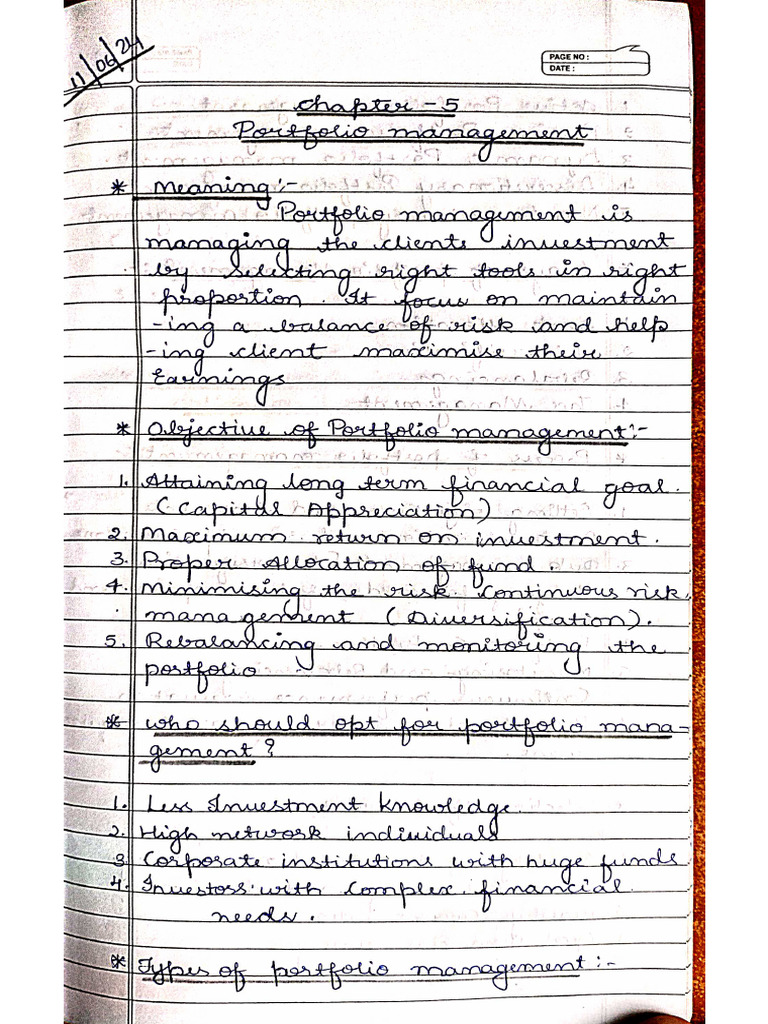 11/06/24
PAGE NO :
DATE :
Chapter - 5
Portfolio management
* Meaning :-
Portfolio management is
managing the clients investment
by selecting right tools in right
proportion. It focus on maintain
-ing a balance of risk and help
-ing client maximise their
Earnings
* Objective of Portfolio management :-
1. Attaining long term financial goal.
(Capital Appreciation)
2. Maximum return on investment.
3. Proper Allocation of fund.
4. Minimising the risk. Continuous risk
management (Diversification).
5. Rebalancing and monitoring the
portfolio
* who should opt for portfolio mana-
gement ?
1. Less Investment knowledge.
2. High network individuals
3. Corporate institutions with huge funds
4. Investors with complex financial
needs.
* Types of portfolio management :-